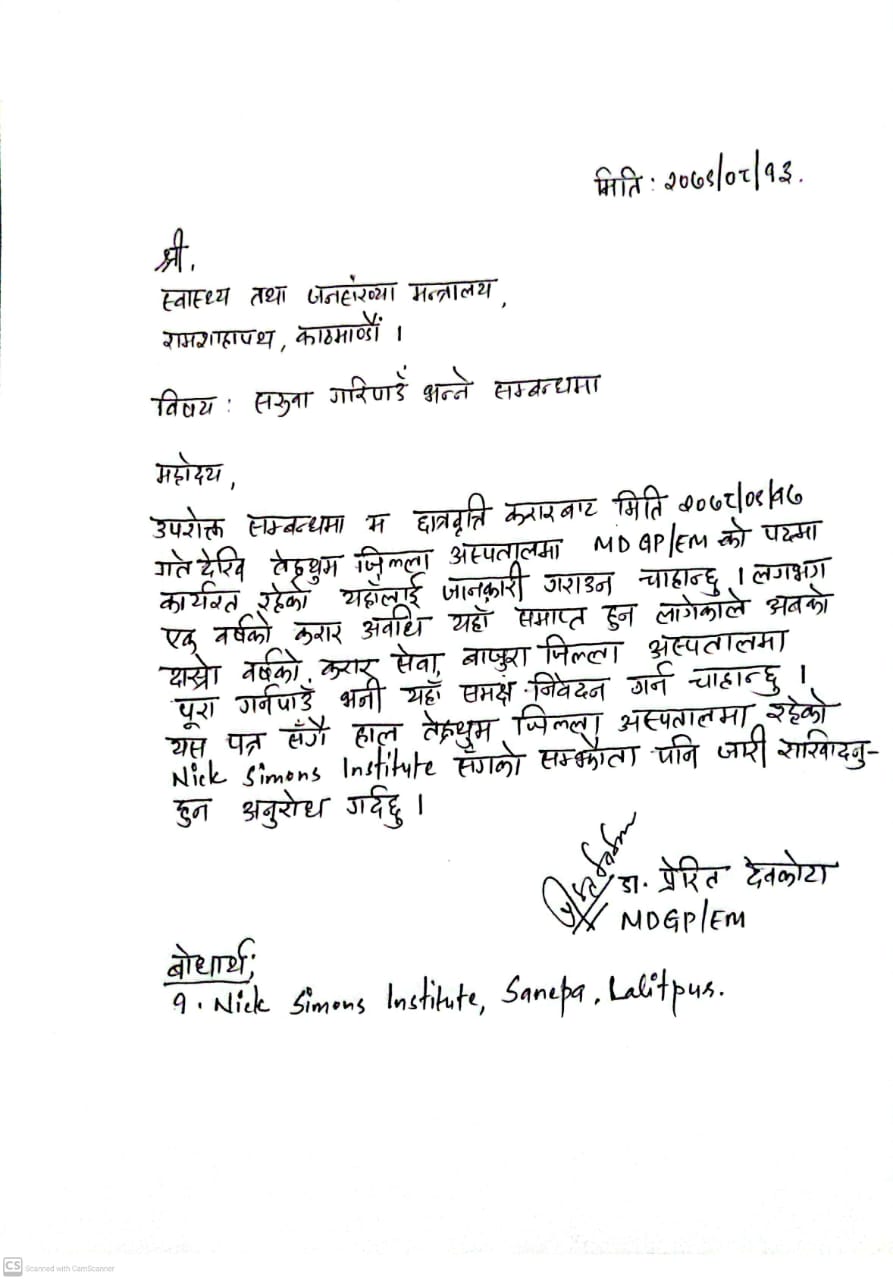 मिति : २०७९/०८/१३.
श्री,
स्वास्थ्य तथा जनसंख्या मन्त्रालय,
रामशाहापथ, काठमाण्डौं ।
विषय : सरुवा गरिपाउँ भन्ने सम्बन्धमा
महोदय,
उपरोक्त सम्बन्धमा म छात्रवृत्ति करारबाट मिति २०७८/०९/१७
गते देखि तेह्रथुम जिल्ला अस्पतालमा MDGP/EM को पदमा
कार्यरत रहेको यहाँलाई जानकारी गराउन चाहान्छु । लगभग
एक वर्षको करार अवधि यहाँ समाप्त हुन लागेकाले अबको
दोस्रो वर्षको करार सेवा, बाजुरा जिल्ला अस्पतालमा
पूरा गर्नपाउँ भनी यहाँ समक्ष निवेदन गर्न चाहान्छु ।
यस पत्र सँगै हाल तेह्रथुम जिल्ला अस्पतालमा रहेको
Nick Simons Institute सँगको सम्झौता पनि जारी राखिदिनु-
हुन अनुरोध गर्दछु ।
डा. प्रेरित देवकोटा
MDGP/EM
बोधार्थ;
१. Nick Simons Institute, Sanepa, Lalitpur.
CS Scanned with CamScanner